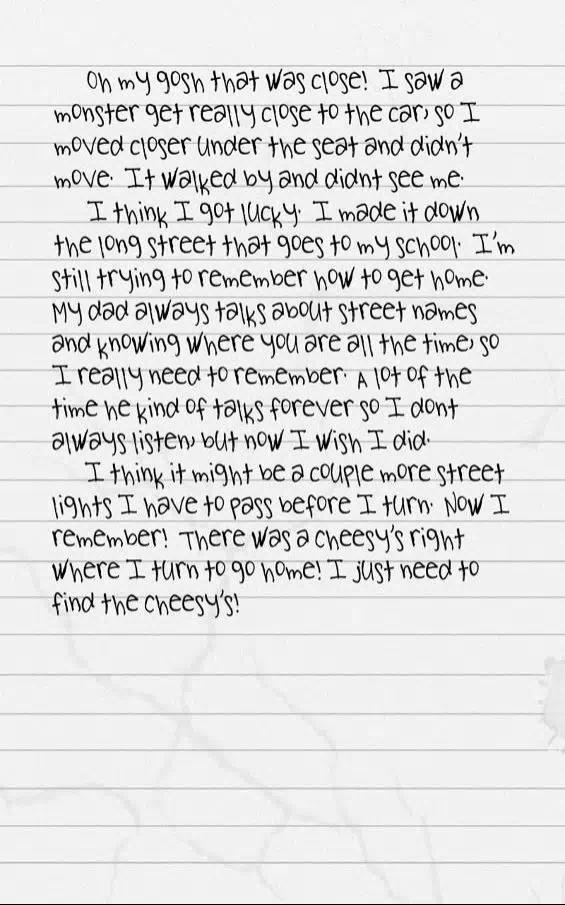 Oh my gosh that was close! I saw a
monster get really close to the car, so I
moved closer under the seat and didn't
move. It walked by and didnt see me.
I think I got lucky. I made it down
the long street that goes to my school. I'm
still trying to remember how to get home.
My dad always talks about street names
and knowing where you are all the time, so
I really need to remember. A lot of the
time he kind of talks forever so I dont
always listen, but now I wish I did.
I think it might be a couple more street
lights I have to pass before I turn. Now I
remember! There was a cheesy's right
where I turn to go home! I just need to
find the cheesy's!